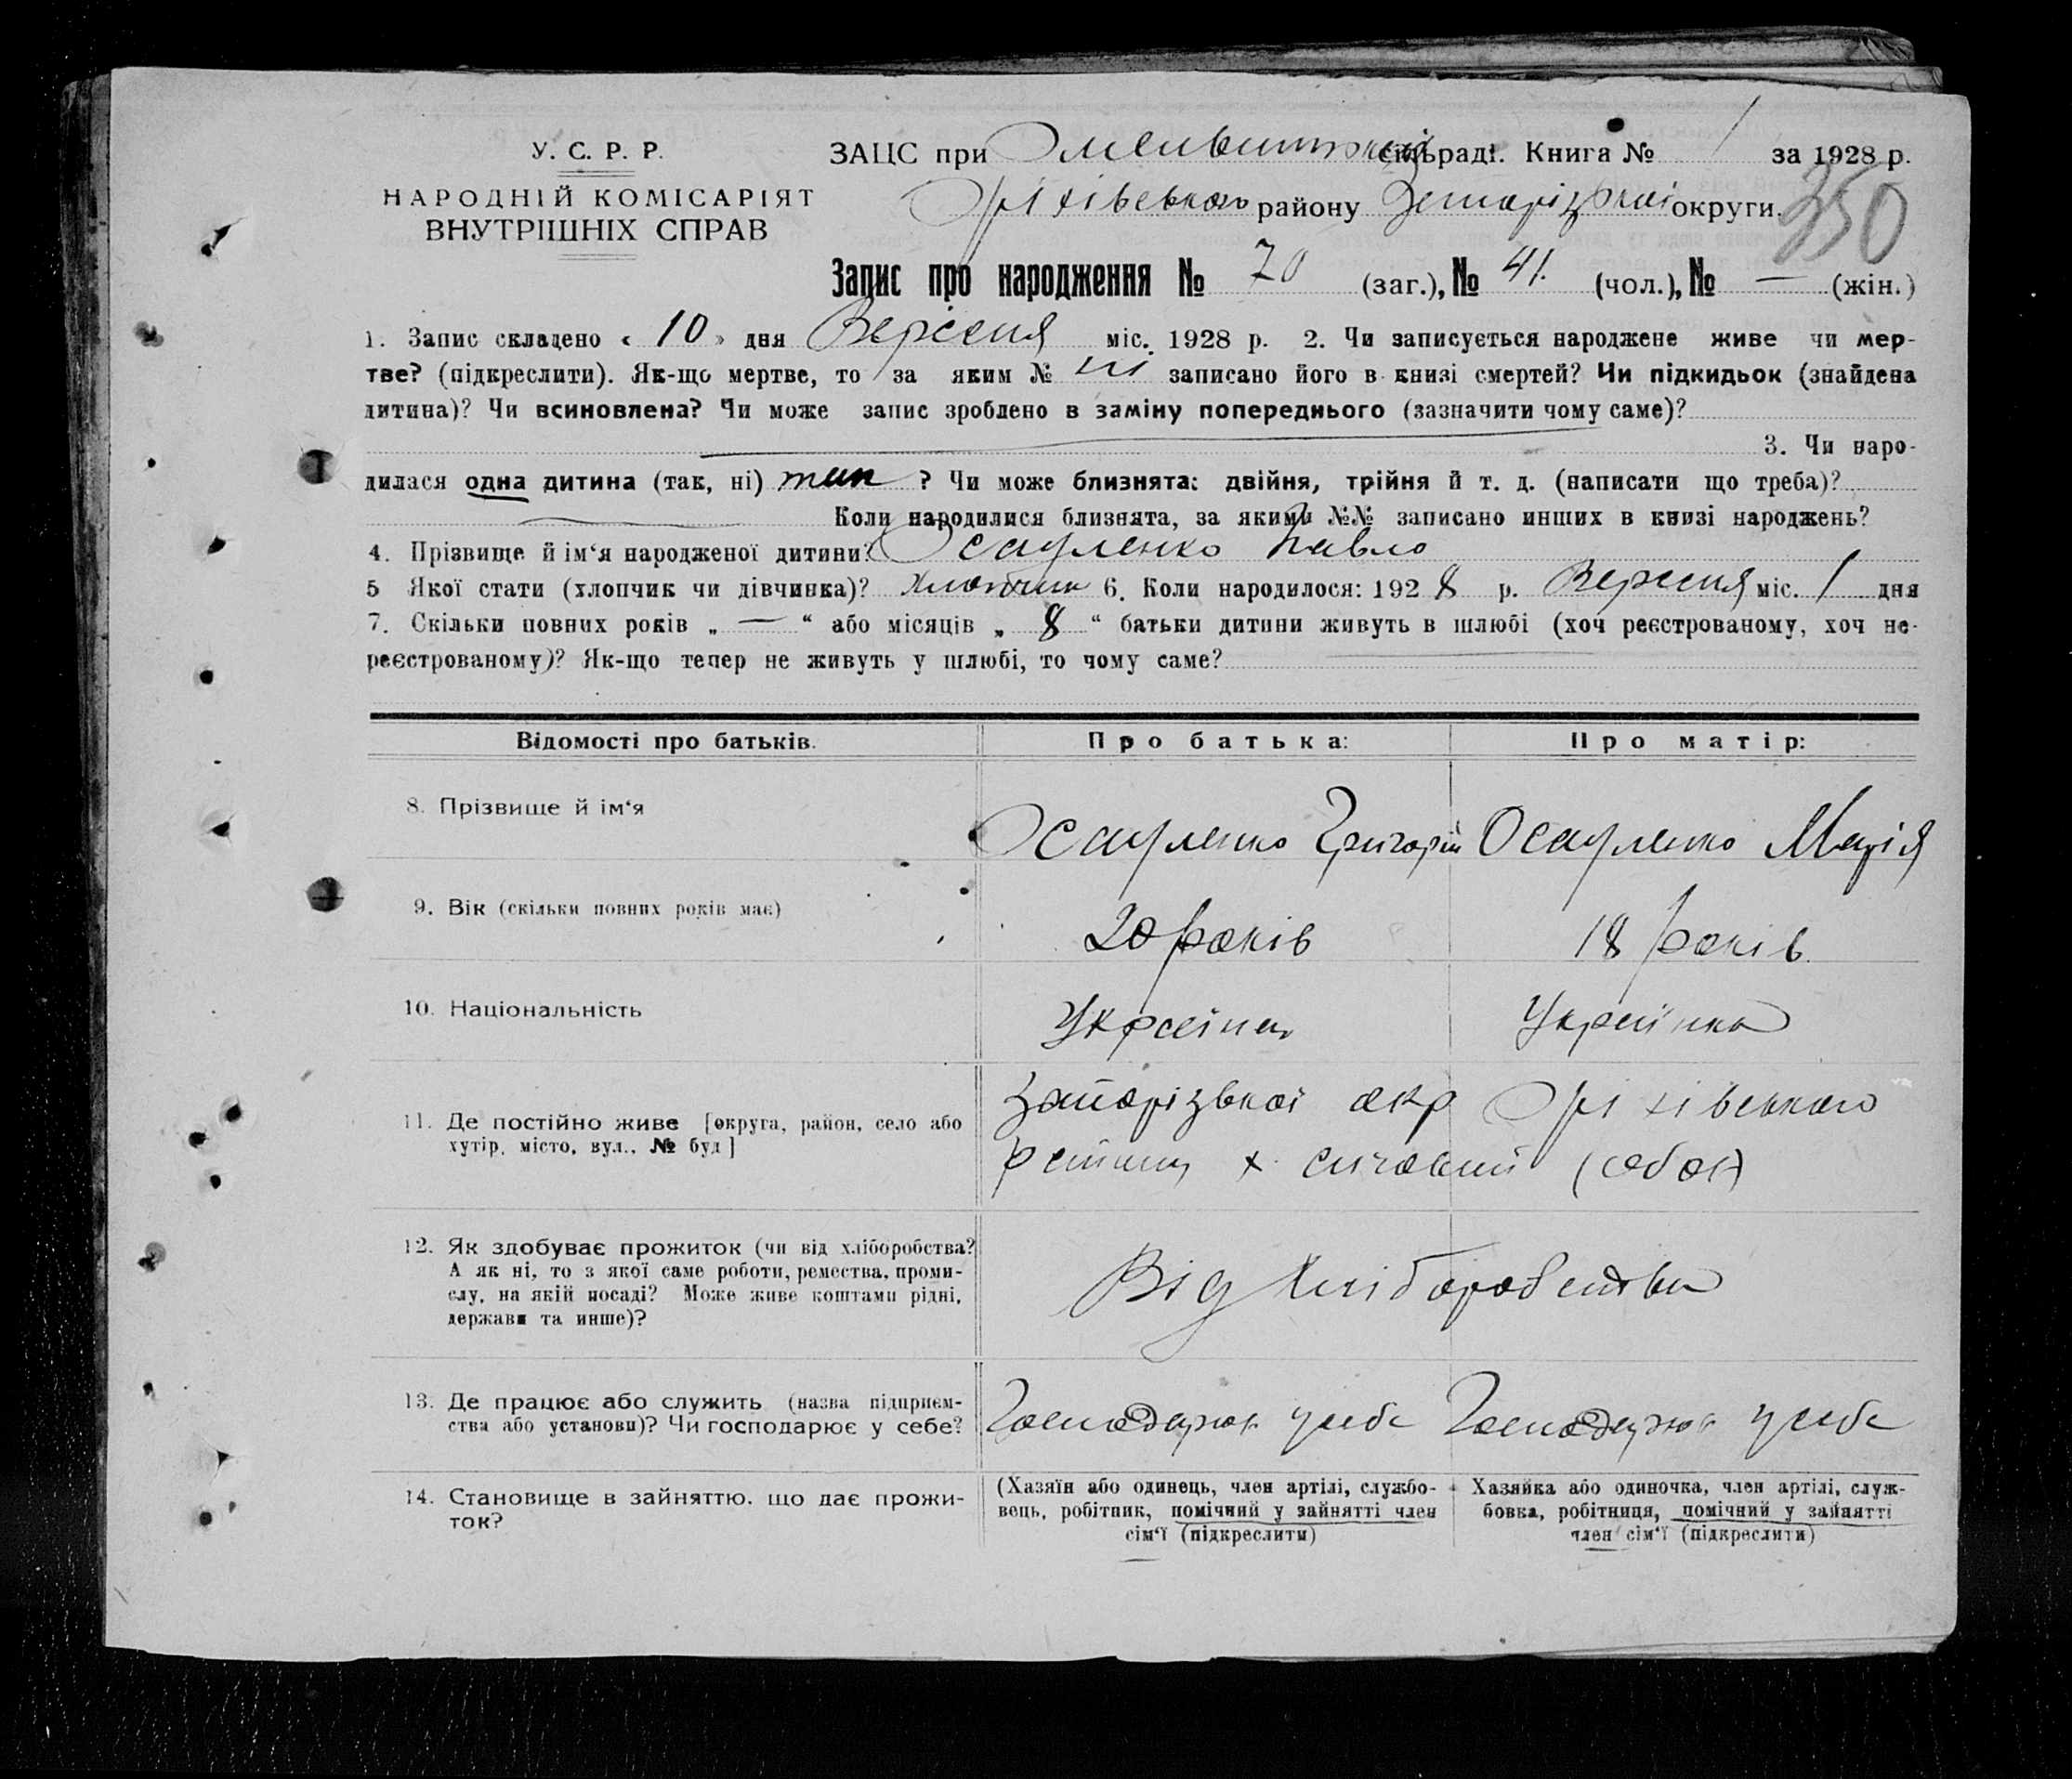 У. С. Р. Р.
НАРОДНІЙ КОМІСАРІЯТ
ВНУТРІШНІХ СПРАВ
ЗАЦС при Омельницькій сільраді. Книга № 1 за 1928 р.
Оріхівського району Запорізької округи.
350
Запис про народження № 70 (заг.), № 41. (чол.), № — (жін.)
1. Запис складено « 10 » дня Вересня міс. 1928 р. 2. Чи записується народжене живе чи мер-
тве? (підкреслити). Як-що мертве, то за яким № ні записано його в книзі смертей? Чи підкидьок (знайдена
дитина)? Чи всиновлена? Чи може запис зроблено в заміну попереднього (зазначити чому саме)?
3. Чи наро-
дилася одна дитина (так, ні) так ? Чи може близнята: двійня, трійня й т. д. (написати що треба)?
Коли народилися близнята, за якими №№ записано инших в книзі народжень?
4. Прізвище й ім‘я народженої дитини? Осауленко Павло
5 Якої стати (хлопчик чи дівчинка)? хлопчик 6. Коли народилося: 1928 р. Вересня міс. 1 дня
7. Скільки повних років „ — “ або місяців „ 8 “ батьки дитини живуть в шлюбі (хоч реєстрованому, хоч не-
реєстрованому)? Як-що тепер не живуть у шлюбі, то чому саме?
Відомості про батьків. Про батька: Про матір:
8. Прізвище й ім‘я Осауленко Григорій Осауленко Марія
9. Вік (скільки повних років має) 20 років 18 років
10. Національність Українець Українка
11. Де постійно живе [округа, район, село або
хутір, місто, вул., № буд]
Запорізької окр Оріхівського
району х. (обоє)
12. Як здобуває прожиток (чи від хліборобства?
А як ні, то з якої саме роботи, ремества, проми-
слу, на якій посаді? Може живе коштами рідні,
держави та инше)?
Від хліборобства
13. Де працює або служить (назва підприєм-
ства або установи)? Чи господарює у себе?
Господарює у себе Господарює у себе
14. Становище в зайняттю, що дає прожи-
ток?
(Хазяїн або одинець, член артілі, службо-
вець, робітник, помічний у зайнятті член
сім‘ї (підкреслити)
Хазяйка або одиночка, член артілі, служ-
бовка, робітниця, помічний у зайнятті
член сім‘ї (підкреслити)